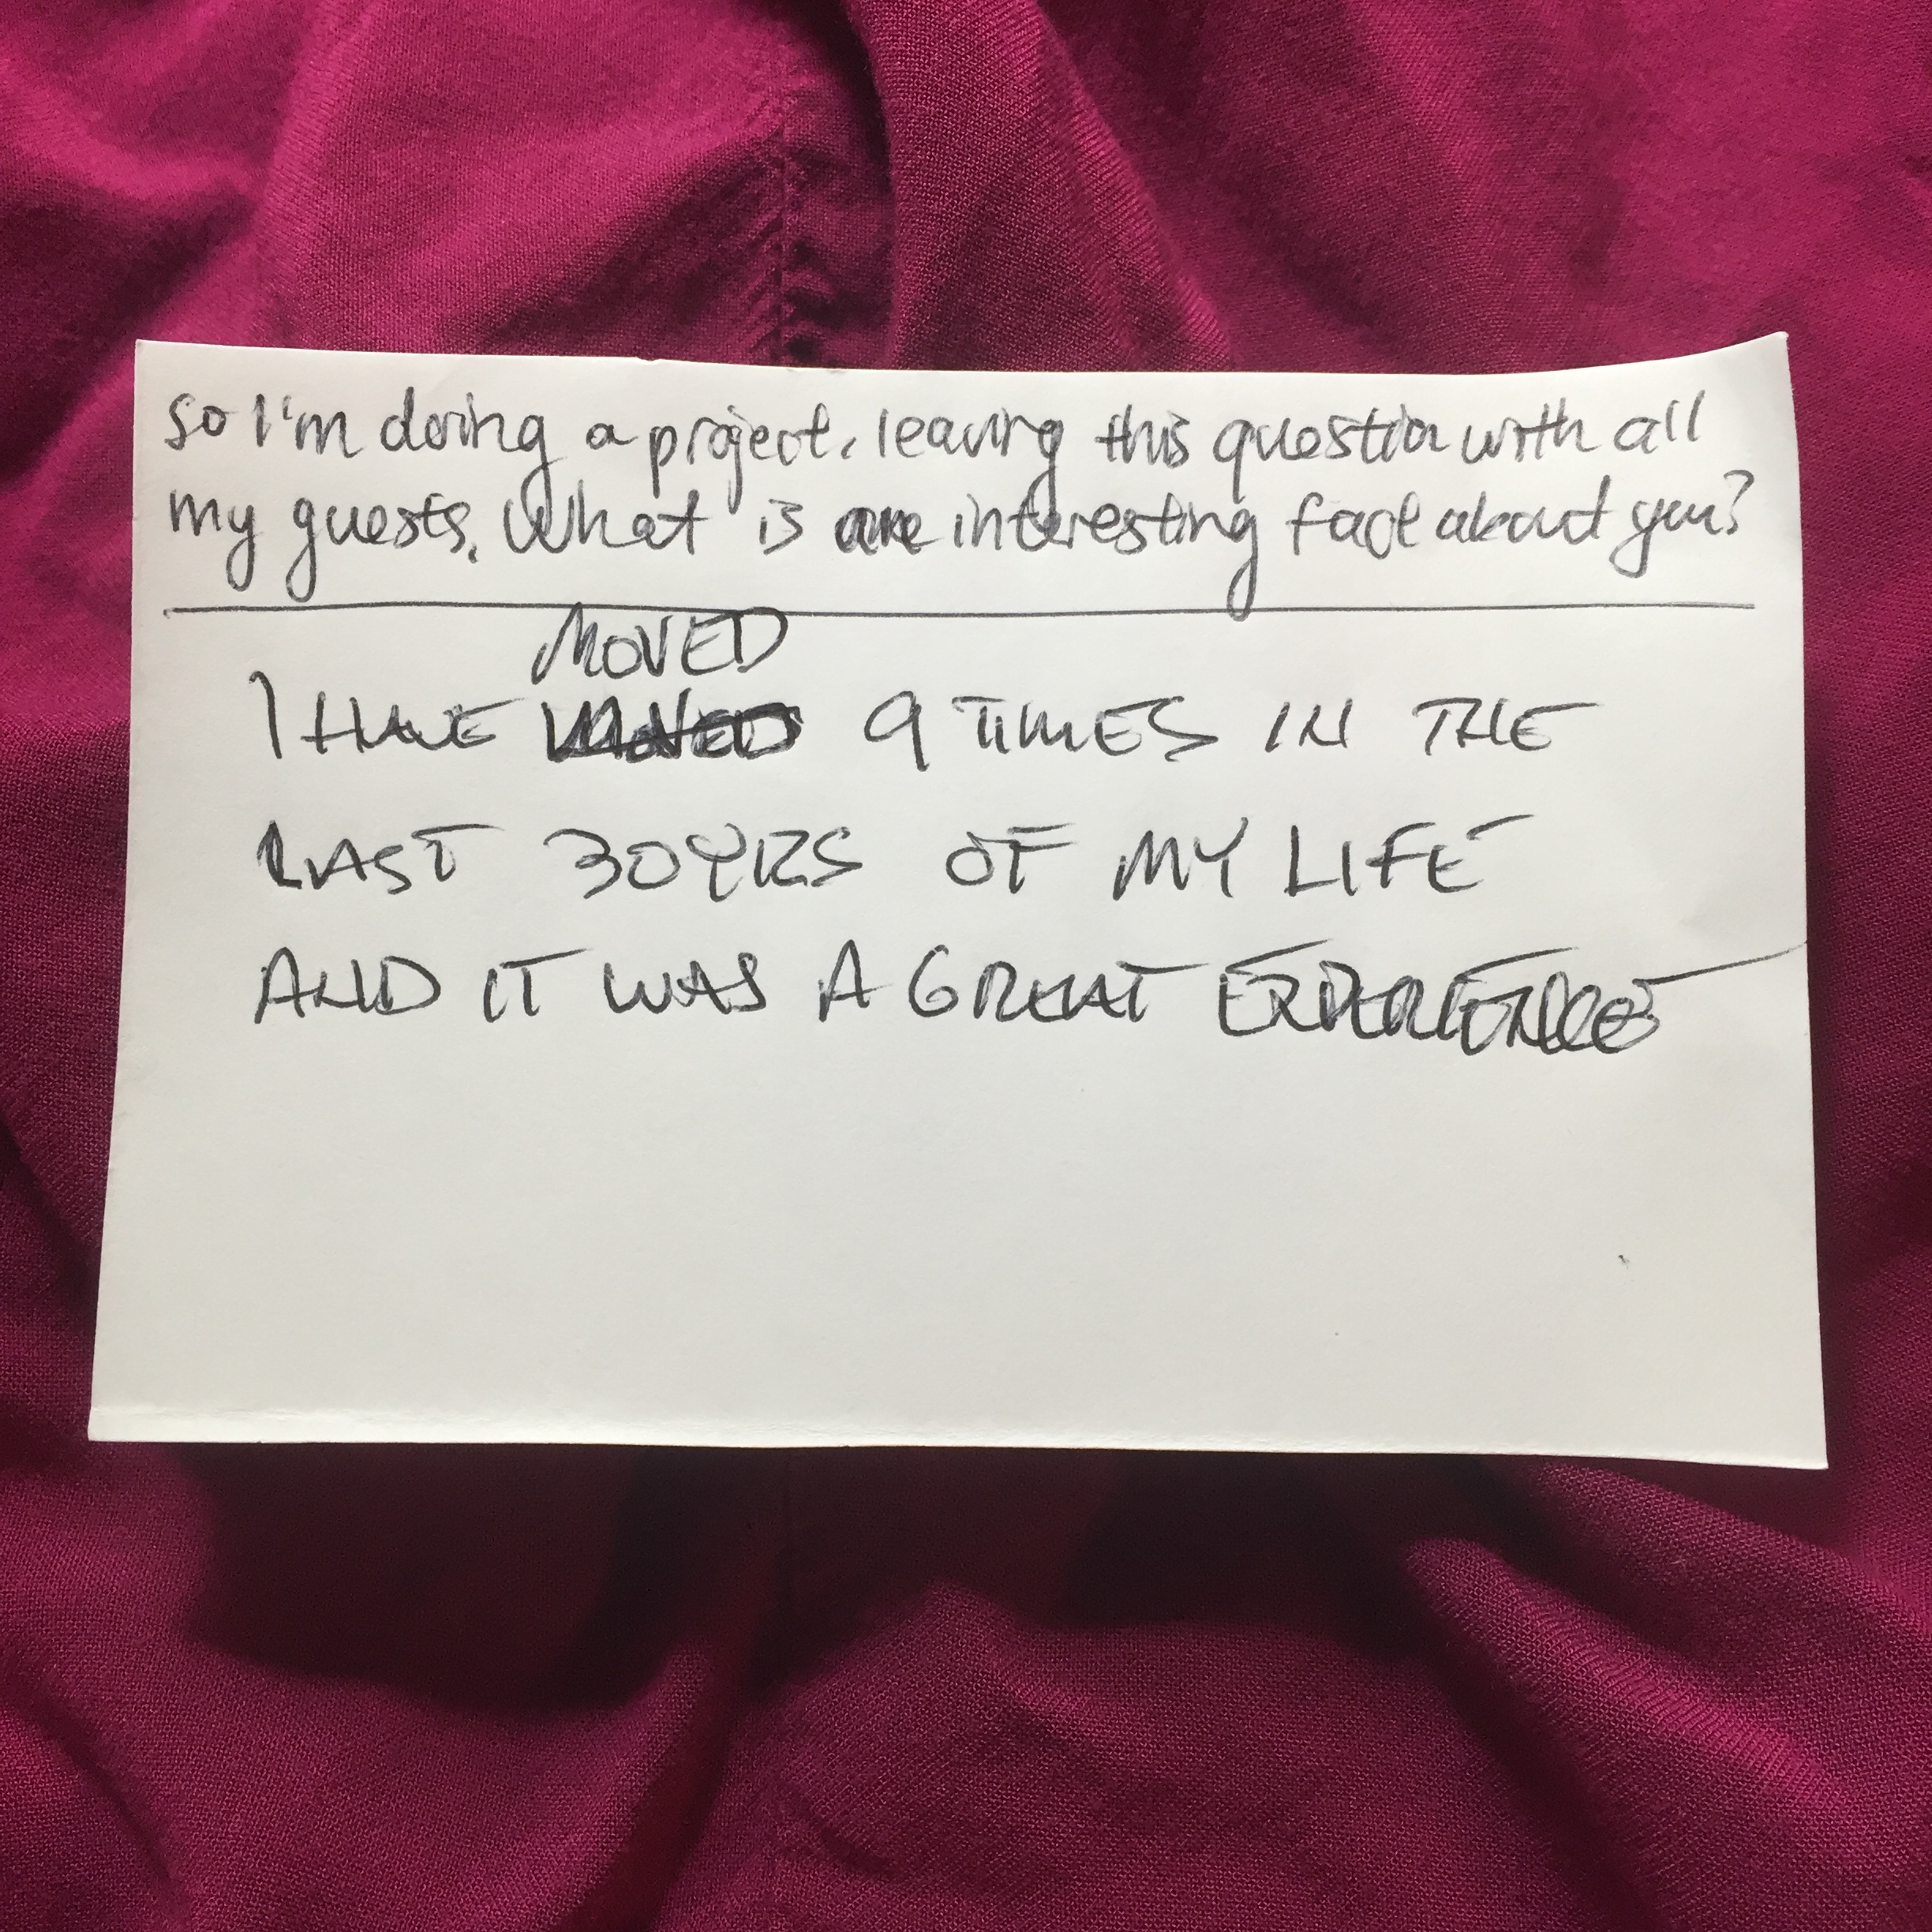 so I'm doing a project, leaving this question with all
my guests. What is one interesting fact about you?
MOVED
I HAVE MOVED 9 TIMES IN THE
LAST 30YRS OF MY LIFE
AND IT WAS A GREAT EXPERIENCE